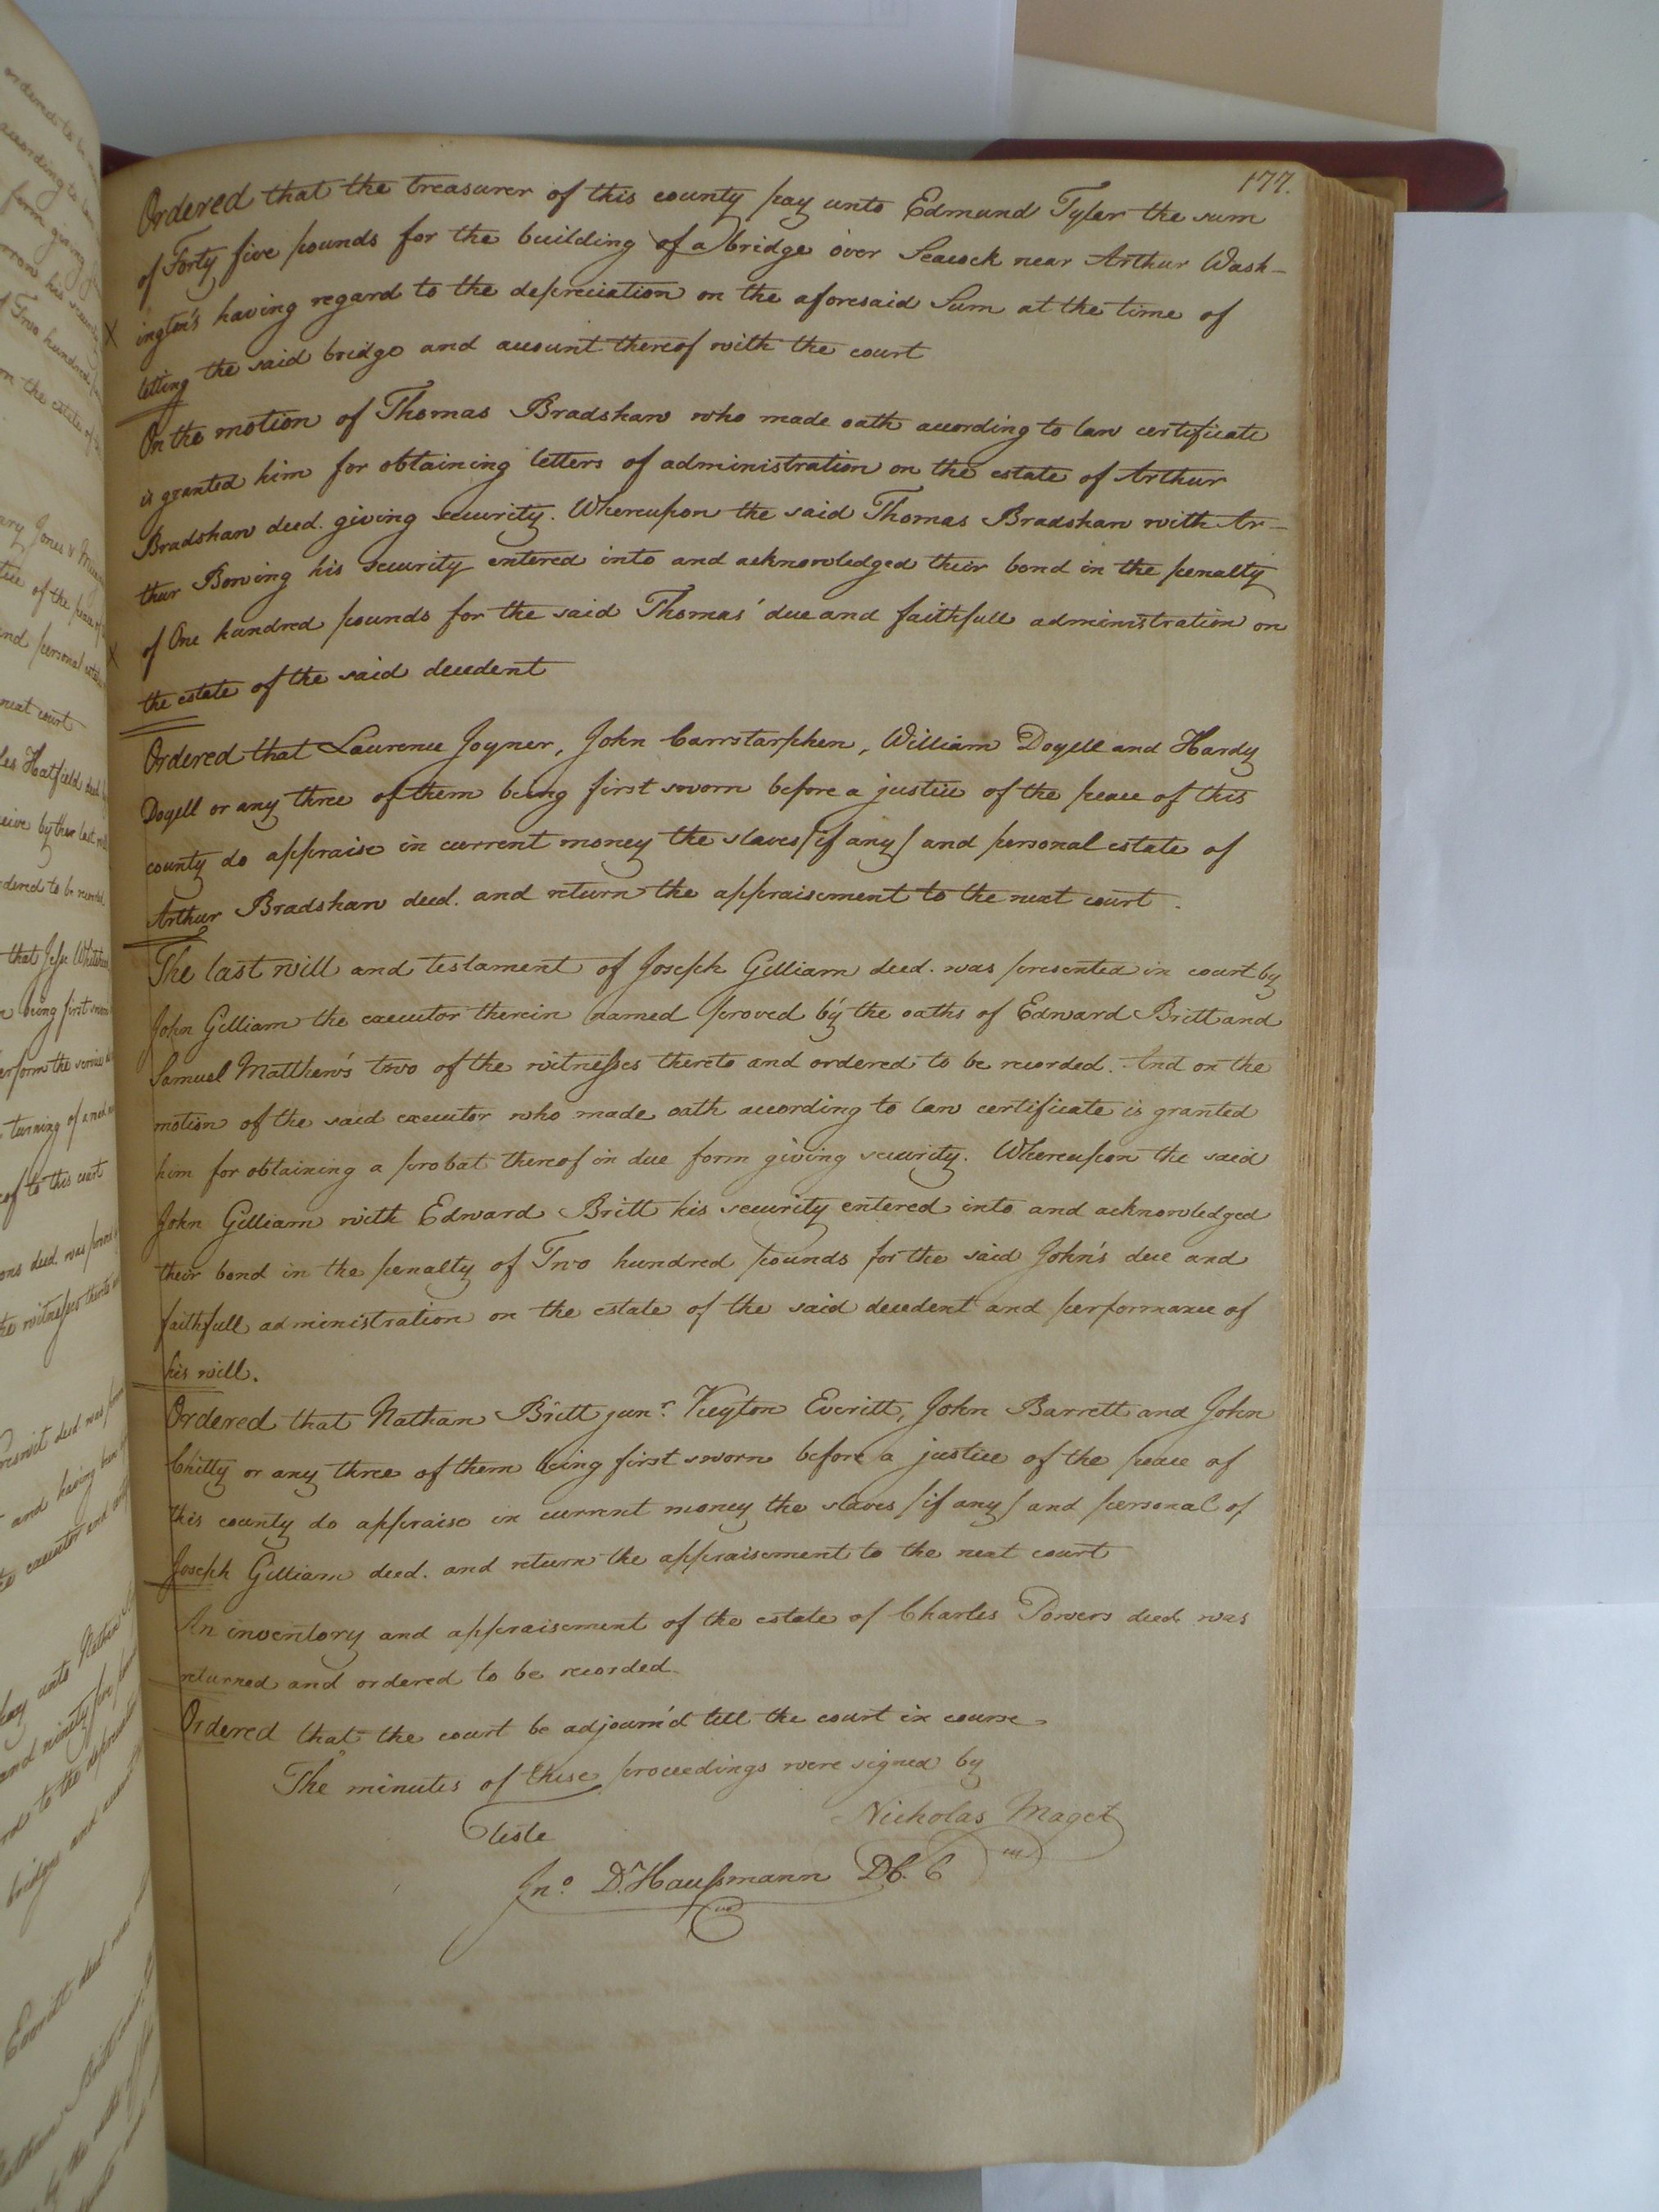 177.
Ordered that the treasurer of this county pay unto Edmund Tyler the sum
of Forty five pounds for the building of a bridge over Seacock near Arthur Wash-
X ington's having regard to the depreciation on the aforesaid Sum at the time of
letting the said bridge and account thereof with the court
On the motion of Thomas Bradshaw who made oath according to law certificate
is granted him for obtaining letters of administration on the estate of Arthur
Bradshaw deed. giving security. Whereupon the said Thomas Bradshaw with Ar-
thur Bowing his security entered into and acknowledged their bond in the penalty
X of One hundred pounds for the said Thomas' due and faithfull administration on
the estate of the said decedent
Ordered that Laurence Joyner, John Carrstarphen, William Doyell and Hardy
Doyell or any three of them being first sworn before a justice of the peace of this
county do appraise in current money the slaves /if any/ and personal estate of
Arthur Bradshaw deed. and return the appraisement to the next court.
The last will and testament of Joseph Gilliam deed. was presented in court by
John Gilliam the executor therein named proved by the oaths of Edward Britt and
Samuel Matthew's two of the witnesses thereto and ordered to be recorded. And on the
motion of the said executor who made oath according to law certificate is granted
him for obtaining a probat thereof in due form giving security. Whereupon the said
John Gilliam with Edward Britt his security entered into and acknowledged
their bond in the penalty of Two hundred pounds for the said John's due and
faithfull administration on the estate of the said decedent and performance of
his will.
Ordered that Nathan Britt junr. Everitt, John Barrett and John
Chitty or any three of them being first sworn before a justice of the peace of
this county do appraise in current money the slaves /if any/ and personal of
Joseph Gilliam deed. and return the appraisement to the next court
An inventory and appraisement of the estate of Charles Powers deed was
returned and ordered to be recorded.
Ordered that the court be adjourn'd till the court in course
The minutes of these proceedings were signed by
Nicholas Maget
Teste
Jno. D. Haussmann D.C.C